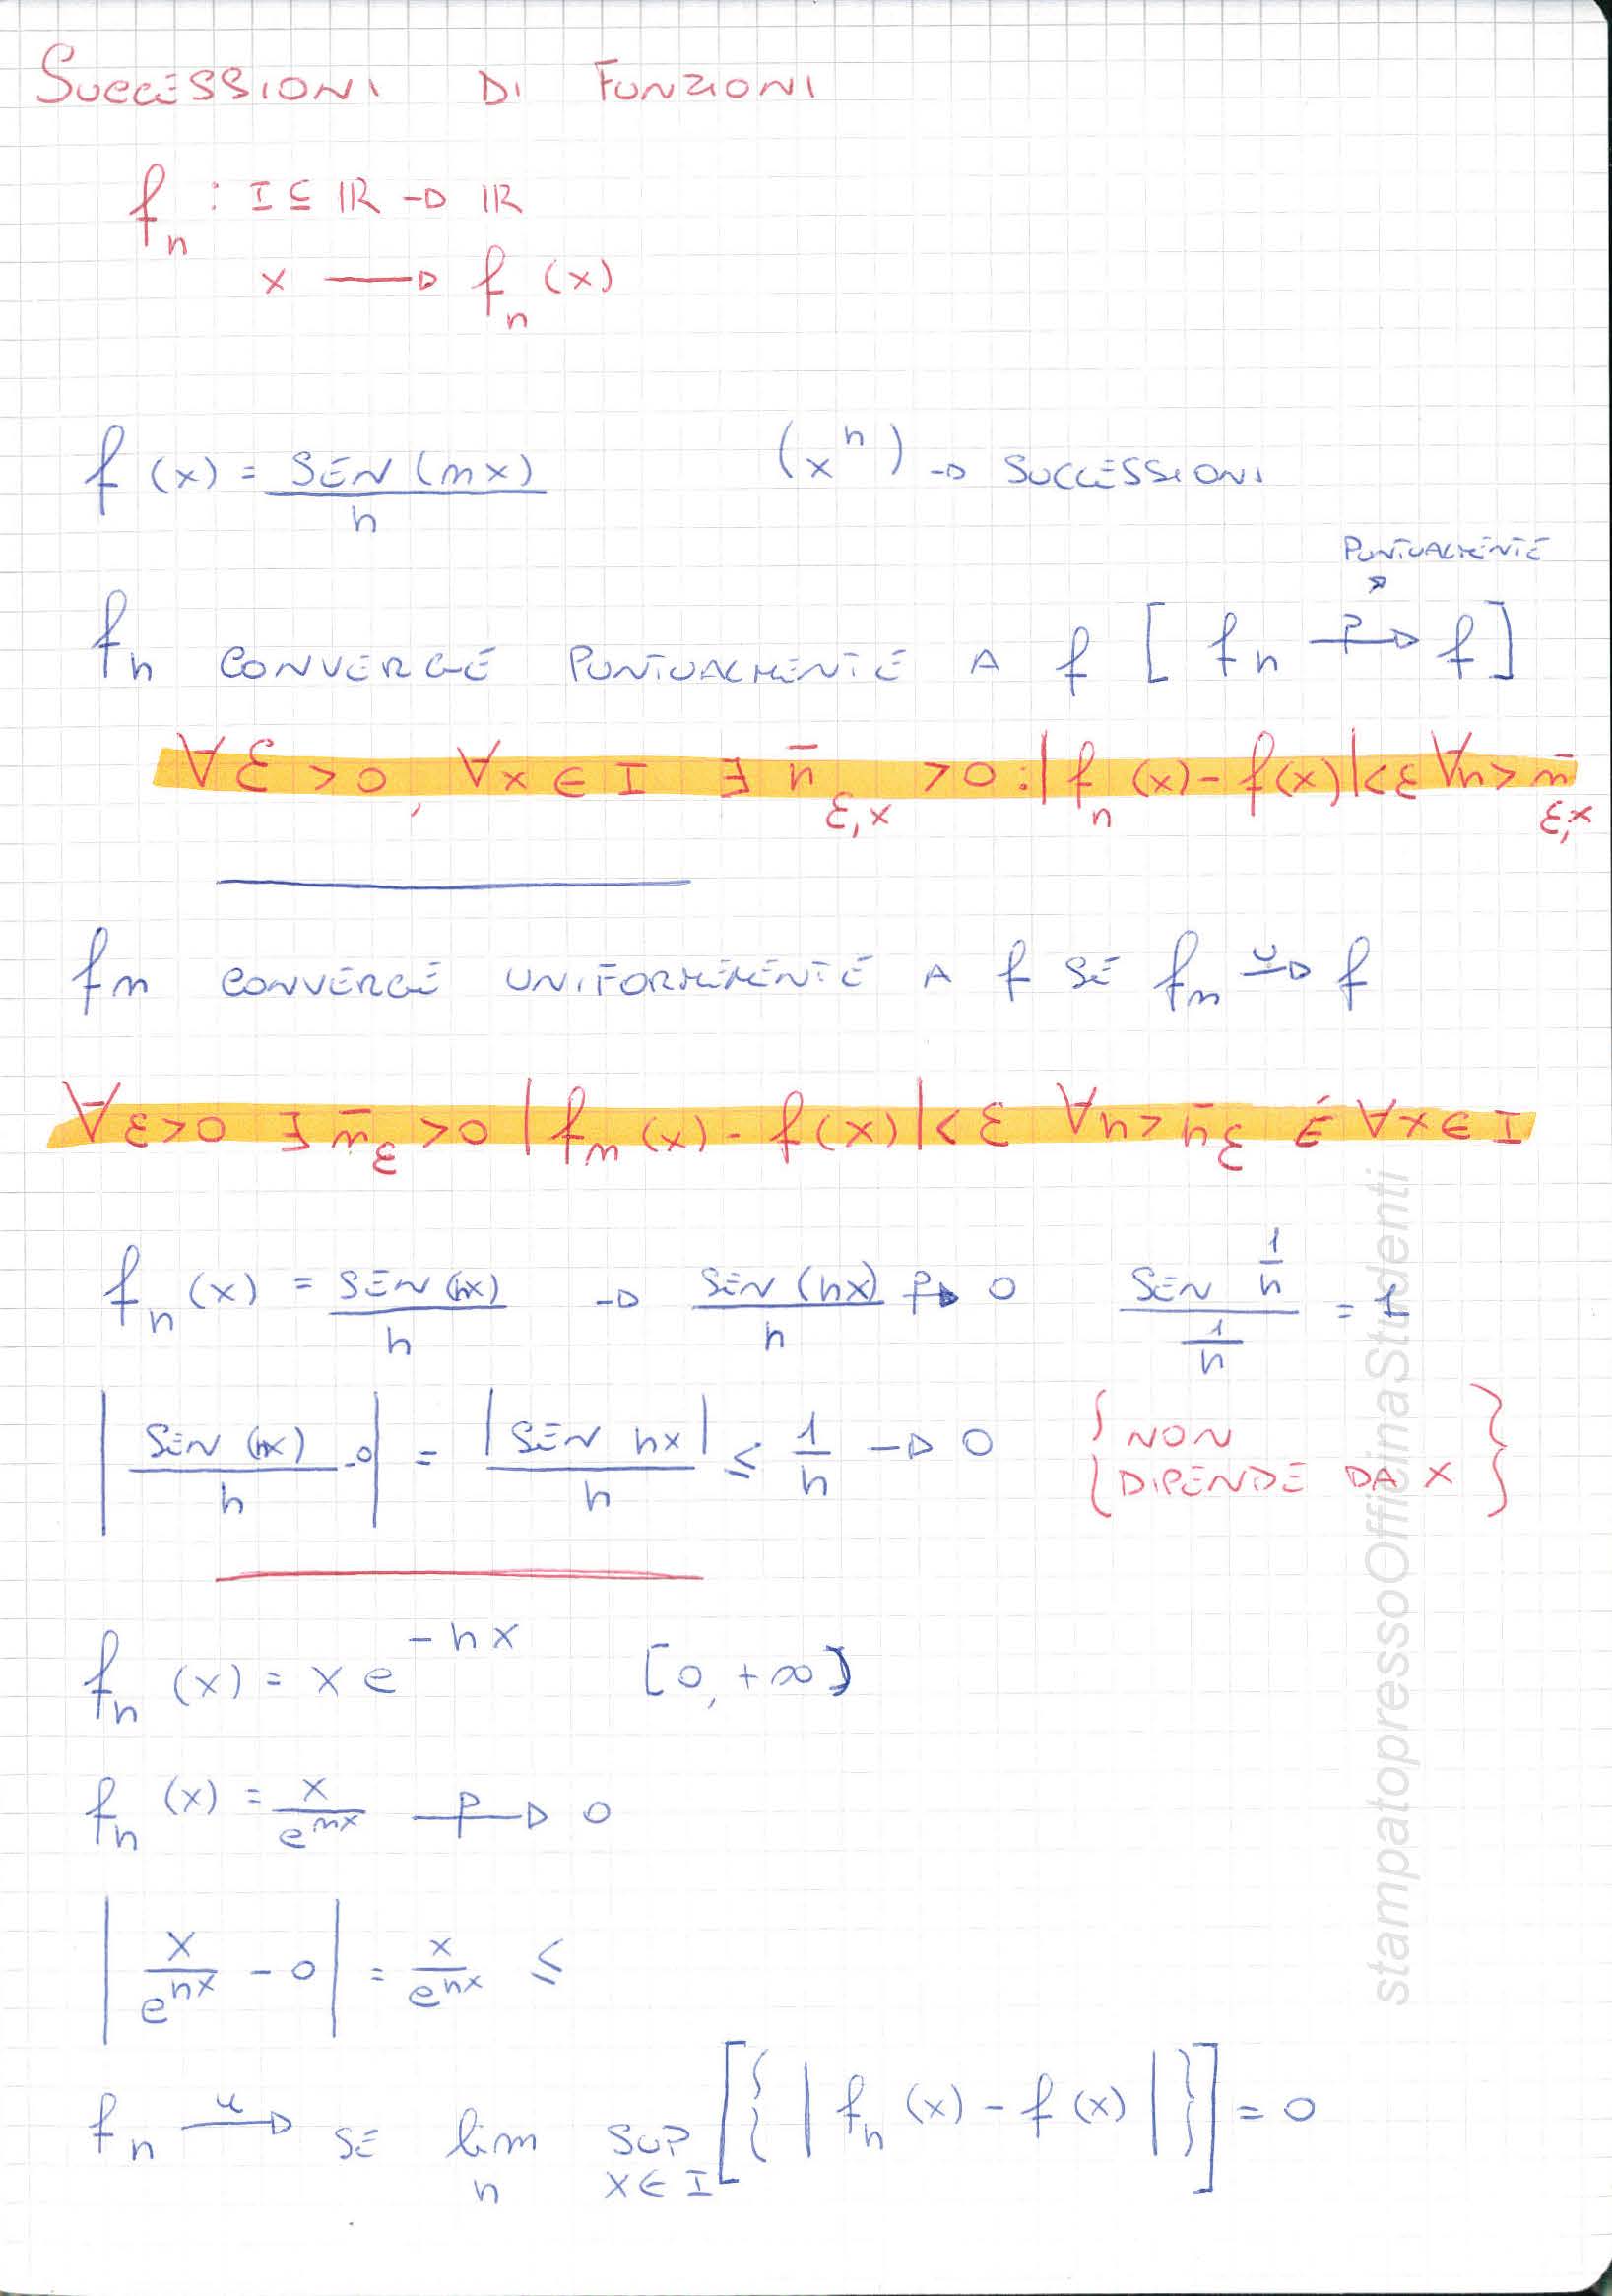 SUCCESSIONI DI FUNZIONI
fn : I ⊆ ℝ → ℝ
x → fn (x)
f (x) = SEN (nx) / n (x^n) → SUCCESSIONI
PUNTUALMENTE
fn CONVERGE PUNTUALMENTE A f [ fn –p→ f ]
∀ε > 0, ∀x ∈ I ∃ n̄ε,x > 0 : | fn (x) - f(x) | < ε ∀n > n̄ε,x
fn CONVERGE UNIFORMEMENTE A f SE fn –u→ f
∀ε > 0 ∃ n̄ε > 0 | fn (x) - f(x) | < ε ∀n > n̄ε E ∀x ∈ I
fn (x) = SEN (nx) / n → SEN (nx) / n p→ 0 SEN 1/n / 1/n = 1
| SEN (nx) / n - 0 | = | SEN nx | / n ≤ 1/n → 0 { NON
DIPENDE DA X }
fn (x) = x e^-nx [0, +∞)
fn (x) = x / e^nx –p→ 0
| x / e^nx - 0 | = x / e^nx ≤
fn –u→ SE lim n SUP x ∈ I [ { | fn (x) - f (x) | } ] = 0
stampatopressoOfficinaStudenti